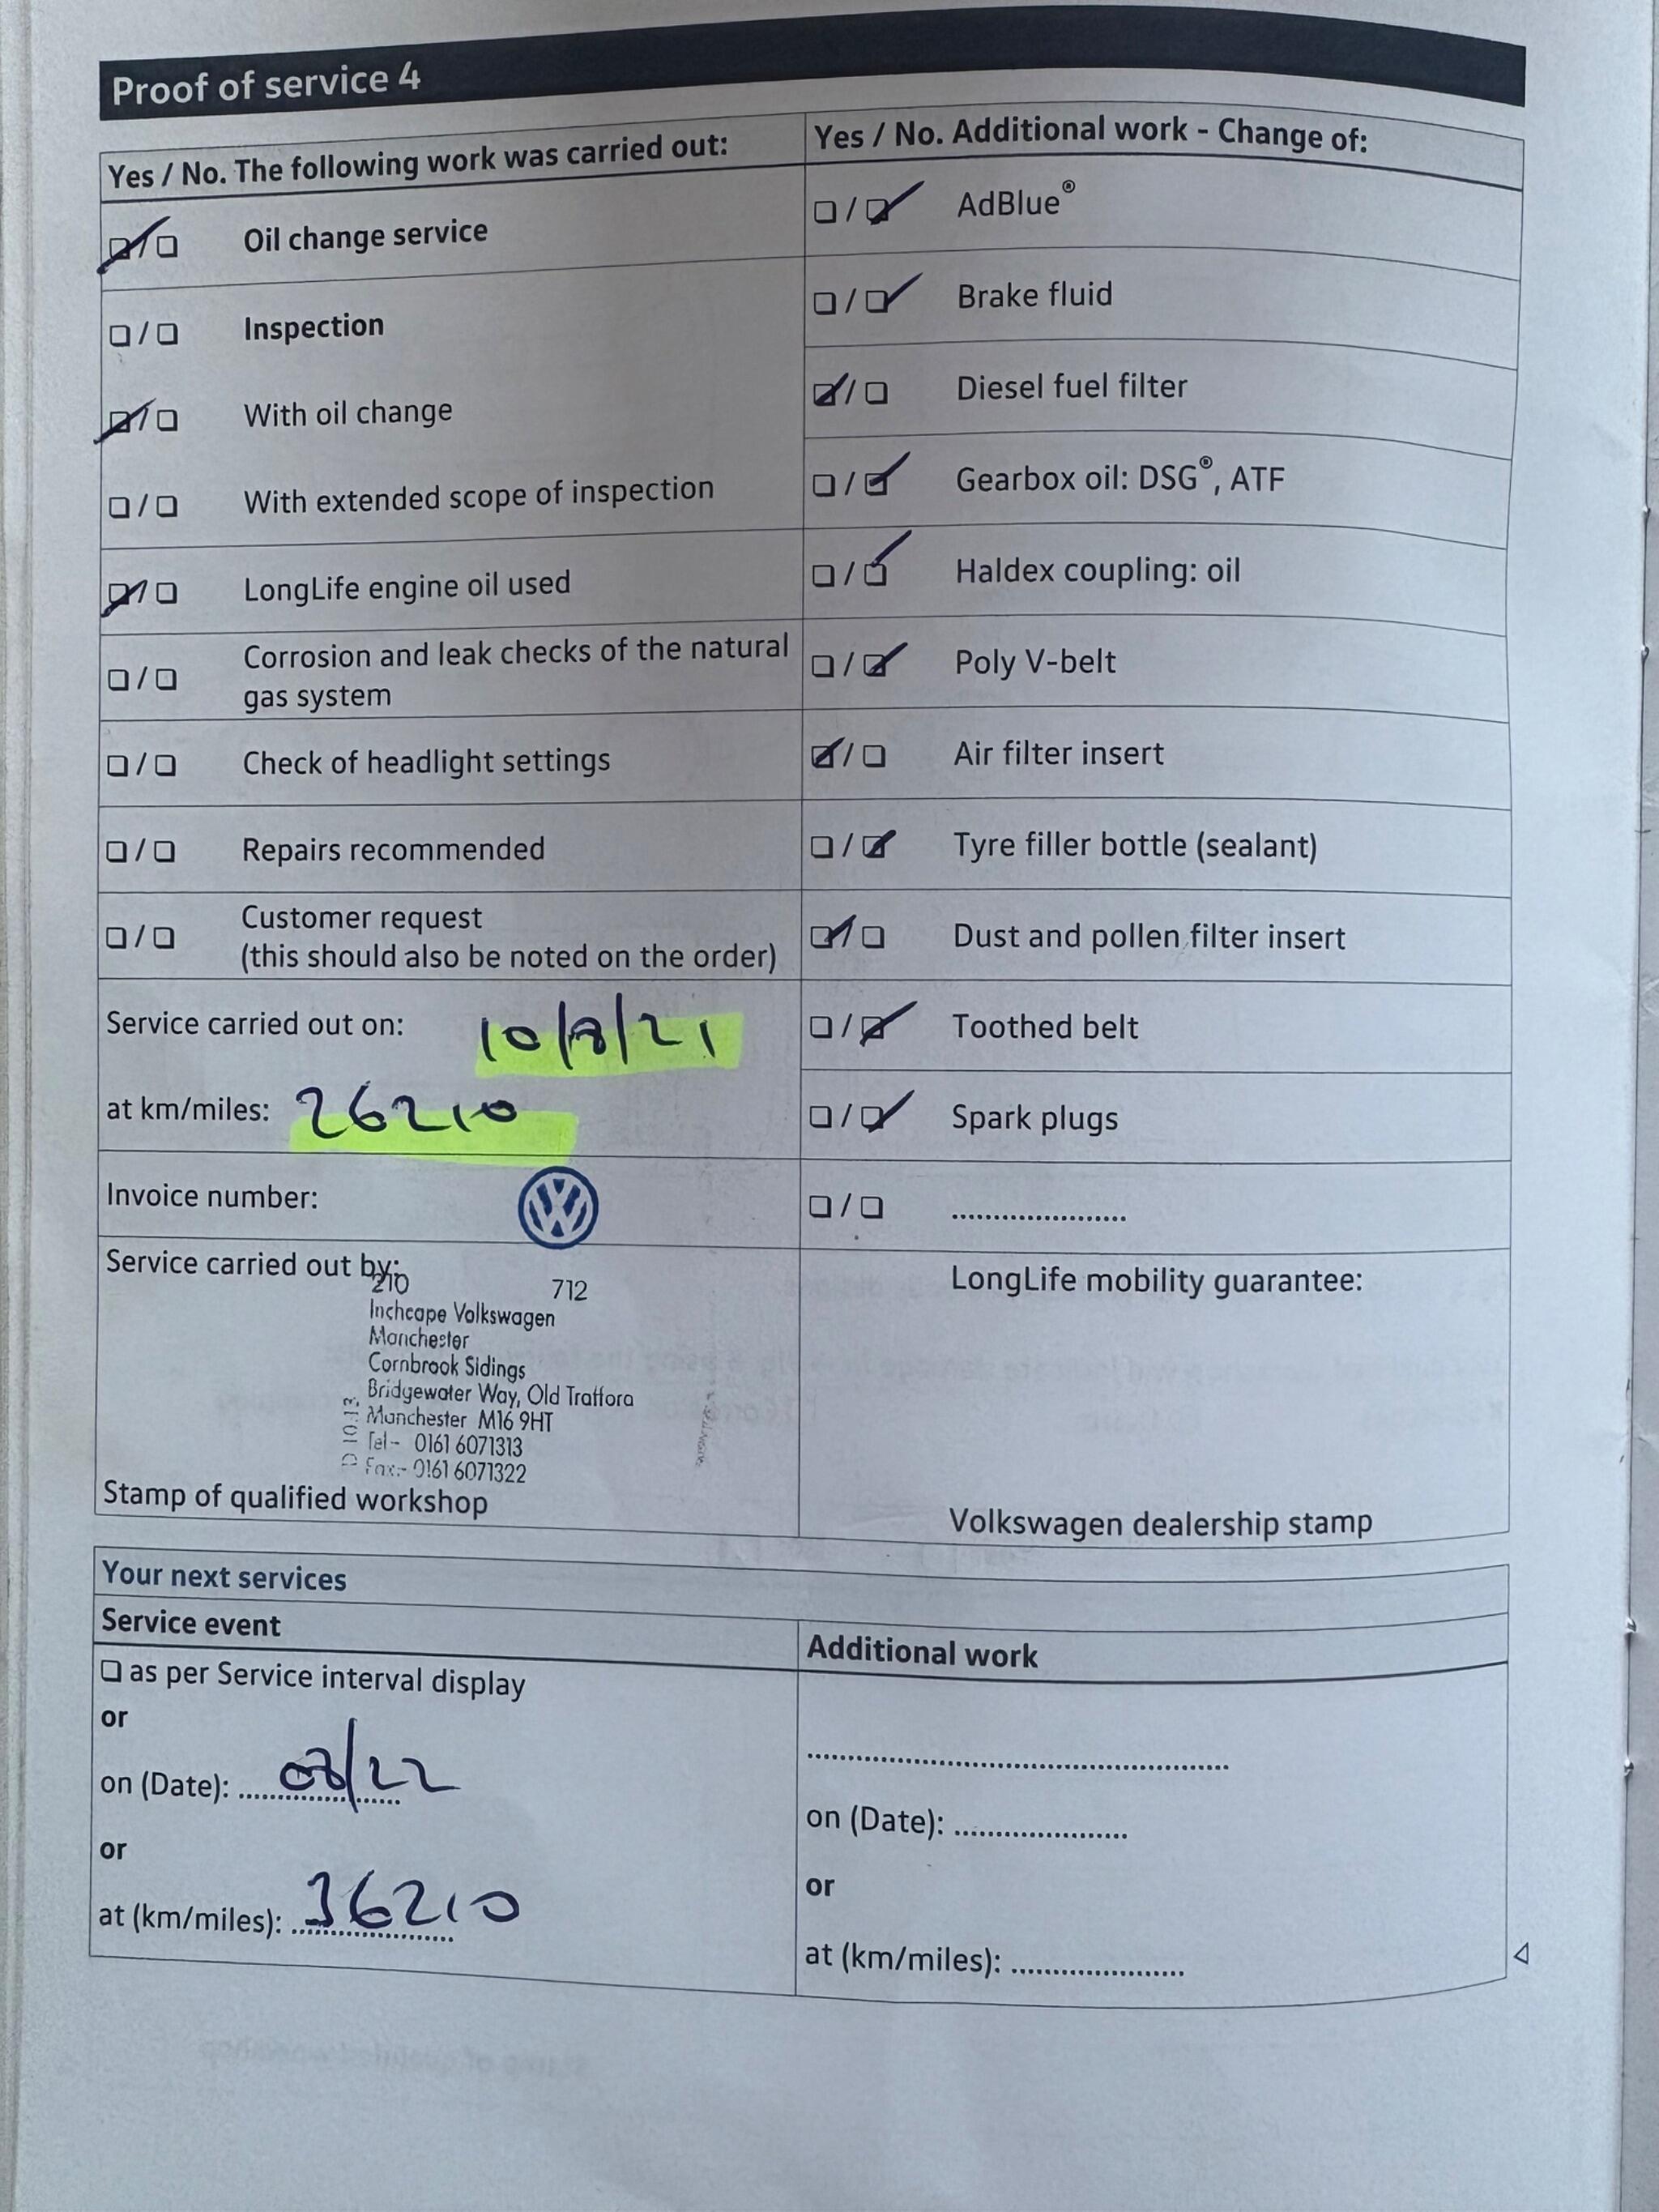 Proof of service 4
Yes / No. The following work was carried out:
Oil change service
Inspection
With oil change
With extended scope of inspection
LongLife engine oil used
Corrosion and leak checks of the natural
gas system
Check of headlight settings
Repairs recommended
Customer request
(this should also be noted on the order)
Service carried out on: 10/8/21
at km/miles: 26210
Invoice number:
Service carried out by:
210 712
Inchcape Volkswagen
Manchester
Cornbrook Sidings
Bridgewater Way, Old Trafford
Manchester M16 9HT
Tel- 0161 6071313
Fax:- 0161 6071322
Stamp of qualified workshop
Yes / No. Additional work - Change of:
AdBlue®
Brake fluid
Diesel fuel filter
Gearbox oil: DSG®, ATF
Haldex coupling: oil
Poly V-belt
Air filter insert
Tyre filler bottle (sealant)
Dust and pollen filter insert
Toothed belt
Spark plugs
LongLife mobility guarantee:
Volkswagen dealership stamp
Your next services
Service event
as per Service interval display
or
on (Date): 08/22
or
at (km/miles): 36210
Additional work
on (Date):
or
at (km/miles):